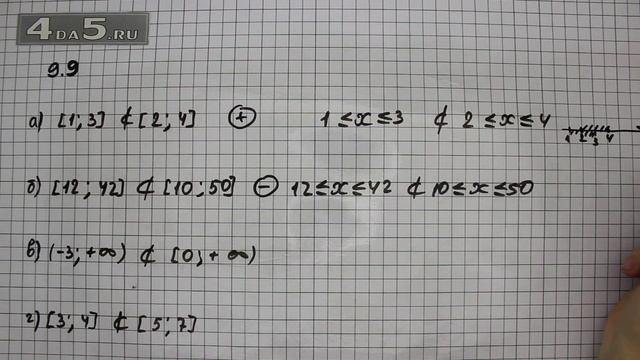 4DA5.RU
9.9
а) [1; 3] ⊄ [2; 4] ⊕ 1 ≤ x ≤ 3 ⊄ 2 ≤ x ≤ 4
1 2 3 4
б) [12; 42] ⊄ [10; 50] ⊖ 12 ≤ x ≤ 42 ⊄ 10 ≤ x ≤ 50
в) (-3; +∞) ⊄ [0; +∞)
г) [3; 4] ⊄ [5; 7]